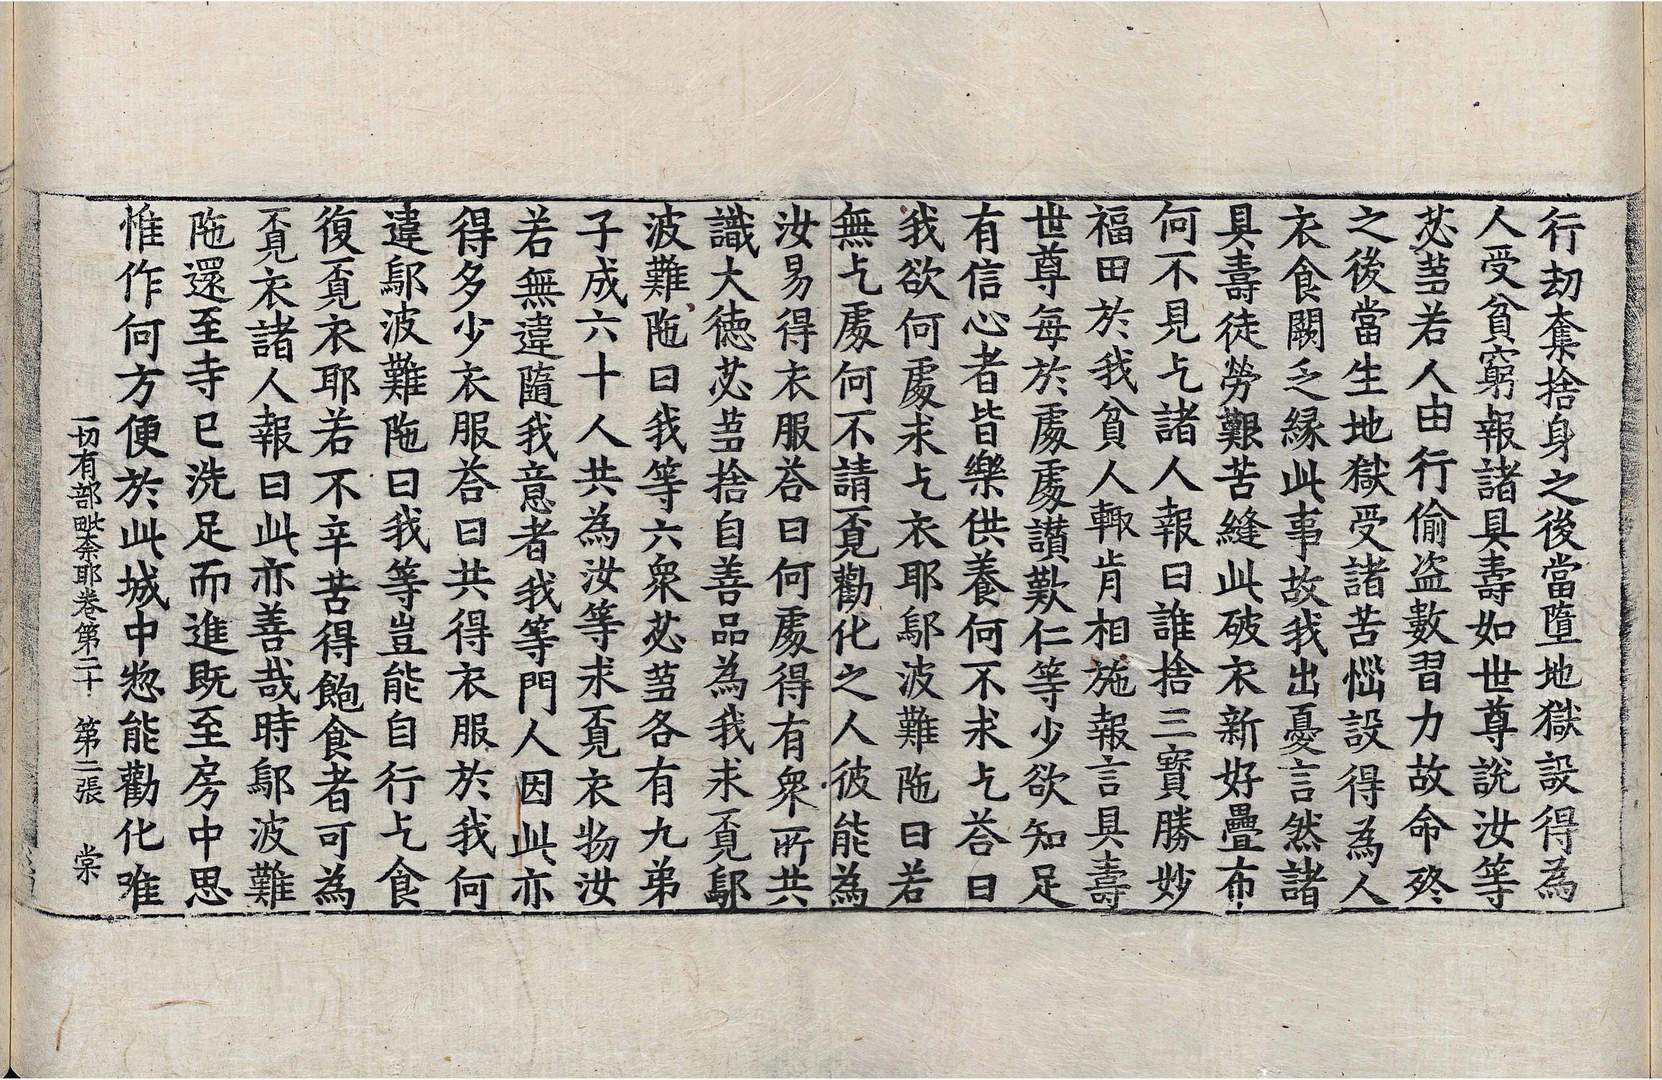 行劫奪捨身之後當墮地獄設得為
人受貧窮報諸具壽如世尊說汝等
苾蒭若人由行偷盗數習力故命終
之後當生地獄受諸苦惱設得為人
衣食闕乏縁此事故我出憂言然諸
具壽徒勞艱苦縫此破衣新好疊布
何不見乞諸人報曰誰捨三寶勝妙
福田於我貧人輙肯相施報言具壽
世尊每於處處讃歎仁等少欲知足
有信心者皆樂供養何不求乞荅曰
我欲何處求乞衣耶鄔波難陁曰若
無乞處何不請覔勸化之人彼能為
汝易得衣服荅曰何處得有衆所共
識大徳苾蒭捨自善品為我求覔鄔
波難陁曰我等六衆苾蒭各有九弟
子成六十人共為汝等求覔衣物汝
若無違隨我意者我等門人因此亦
得多少衣服荅曰共得衣服於我何
違鄔波難陁曰我等豈能自行乞食
復覔衣耶若不辛苦得飽食者可為
覔衣諸人報曰此亦善哉時鄔波難
陁還至寺已洗足而進既至房中思
惟作何方便於此城中惣能勸化唯
一切有部毗奈耶卷第二十　第二張　棠